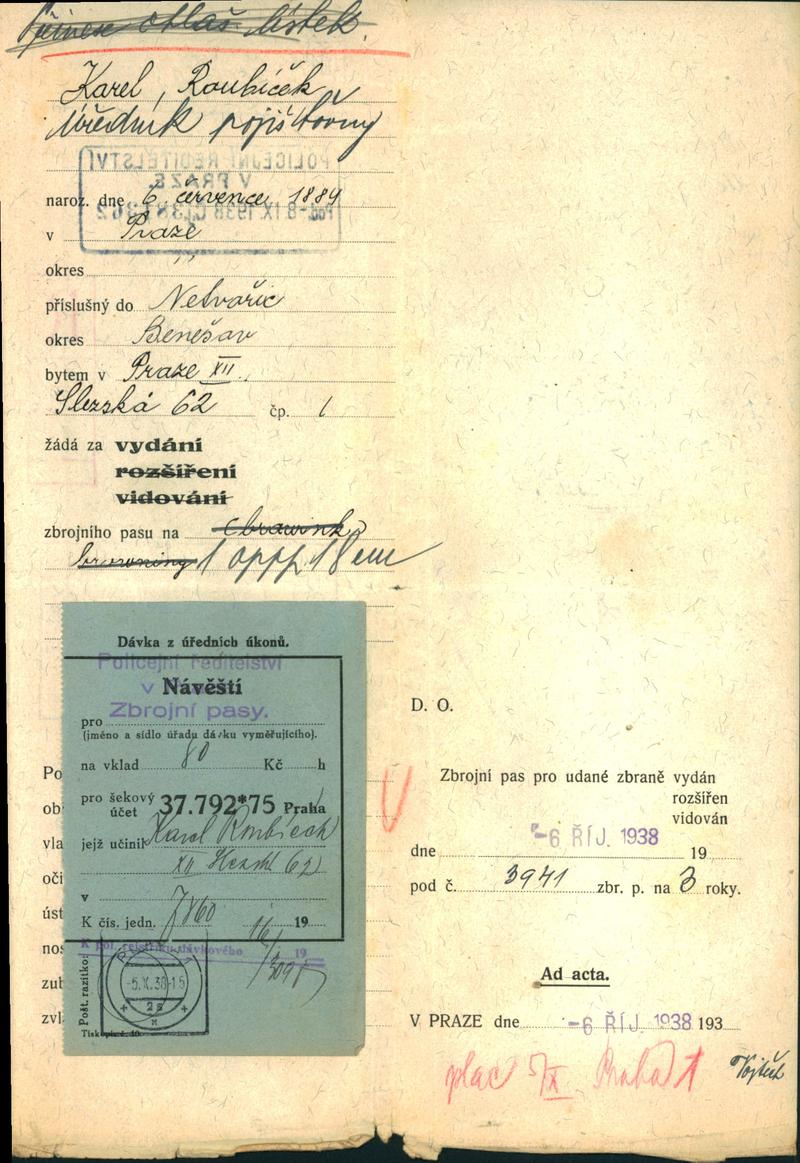 Přinese ohlaš. lístek.
Karel Roubíček
úředník pojišťovny
POLICEJNÍ ŘEDITELSTVÍ
V PRAZE
naroz. dne 6. července 1884
v Praze
okres "
příslušný do Netvořic
okres Benešov
bytem v Praze XII.
Slezská 62 čp. 1
žádá za vydání
rozšíření
vidování
zbrojního pasu na
browning 1 18 cm
Dávka z úředních úkonů.
Policejní ředitelství
v
Návěští
Zbrojní pasy.
pro
(jméno a sídlo úřadu dávku vyměřujícího).
na vklad 80 Kč h
pro šekový
účet 37.792*75 Praha
jejž učinil Karel Roubíček
XII Slezská 62
v
K čís. jedn. 7860 19
K pol. rejstříku dávkového 19
Pošt. razítko:
-5.X.38-15
2a
Po
ob
vla
oči
úst
nos
zub
zvl
D. O.
Zbrojní pas pro udané zbraně vydán
rozšířen
vidován
dne -6 ŘÍJ. 1938 19
pod č. 3941 zbr. p. na 3 roky.
Ad acta.
V PRAZE dne -6 ŘÍJ. 1938 193
plac 5/X Praha 1
Vojtěch